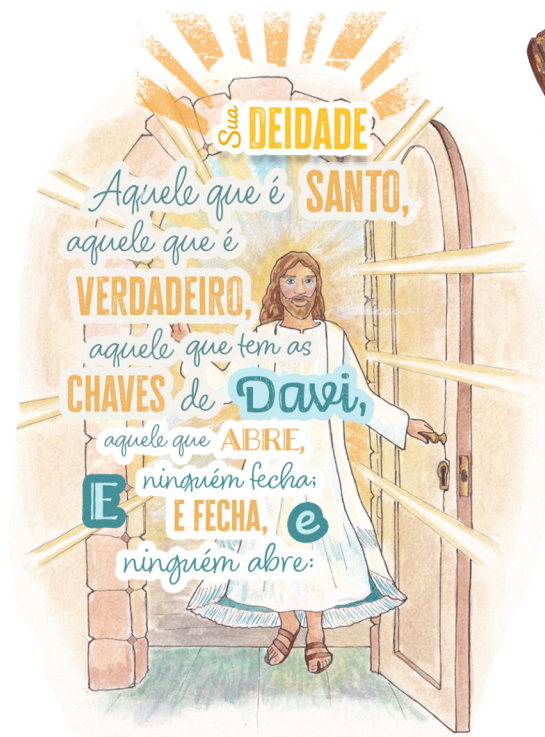 Sua DEIDADE
Aquele que é SANTO,
aquele que é
VERDADEIRO,
aquele que tem as
CHAVES de Davi,
aquele que ABRE,
E ninguém fecha;
E FECHA, e
ninguém abre: